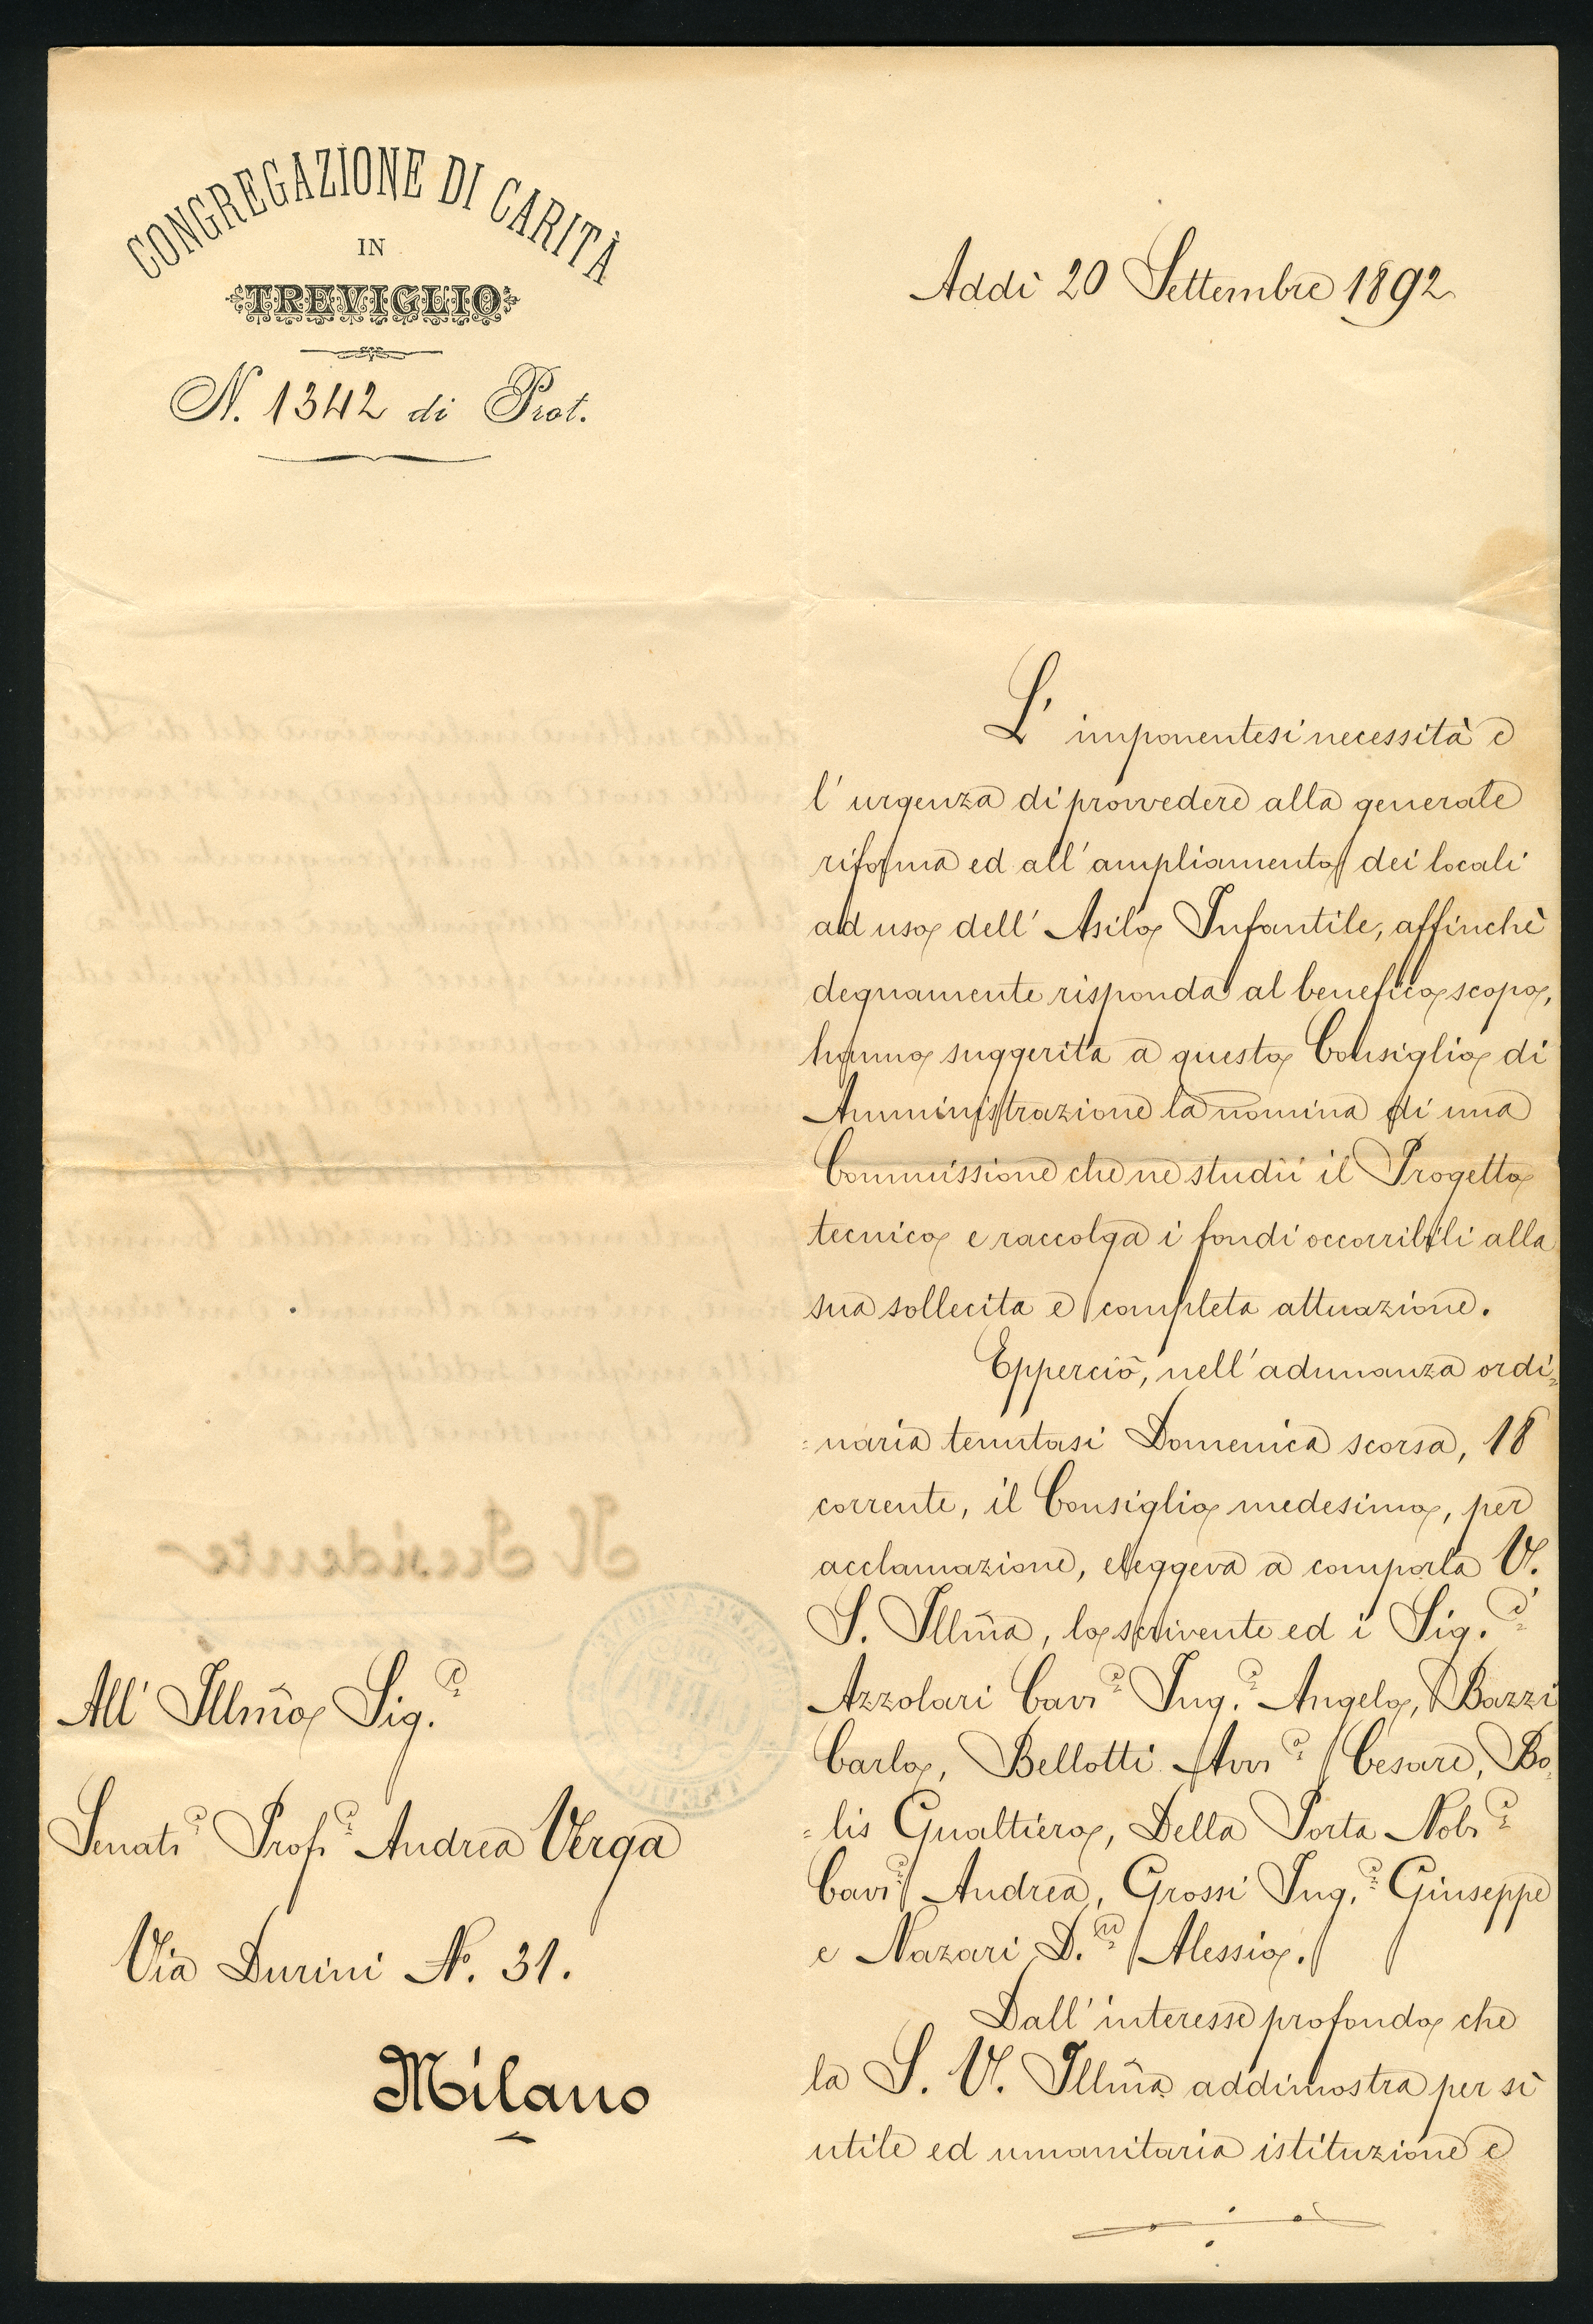 CONGREGAZIONE DI CARITÀ
IN
TREVIGLIO
N. 1342 di Prot.
Addì 20 Settembre 1892
L' imponentesi necessità e
l' urgenza di provvedere alla generale
riforma ed all' ampliamento dei locali
ad uso dell' Asilo Infantile, affinchè
degnamente risponda al benefico scopo,
hanno suggerita a questo Consiglio di
Amministrazione la nomina di una
Commissione che ne studii il Progetto
tecnico e raccolga i fondi occorribili alla
sua sollecita e completa attuazione.
Epperciò, nell' adunanza ordi=
=naria tenutasi Domenica scorsa, 18
corrente, il Consiglio medesimo, per
acclamazione, eleggeva a comporla V.
S. Illma, lo scrivente ed i Sig.i
Azzolari Cavr Ing.e Angelo, Bazzi
Carlo, Bellotti Avve Cesare, Bo=
=lis Gualtiero, Della Porta Nobe
Cave Andrea, Grossi Ing.e Giuseppe
e Nazari D.r Alessio.
Dall' interesse profondo che
la S. V. Illma addimostra per sì
utile ed umanitaria istituzione e
All' Illmo Sig.r
Senatr Profr Andrea Verga
Via Durini N. 31.
Milano